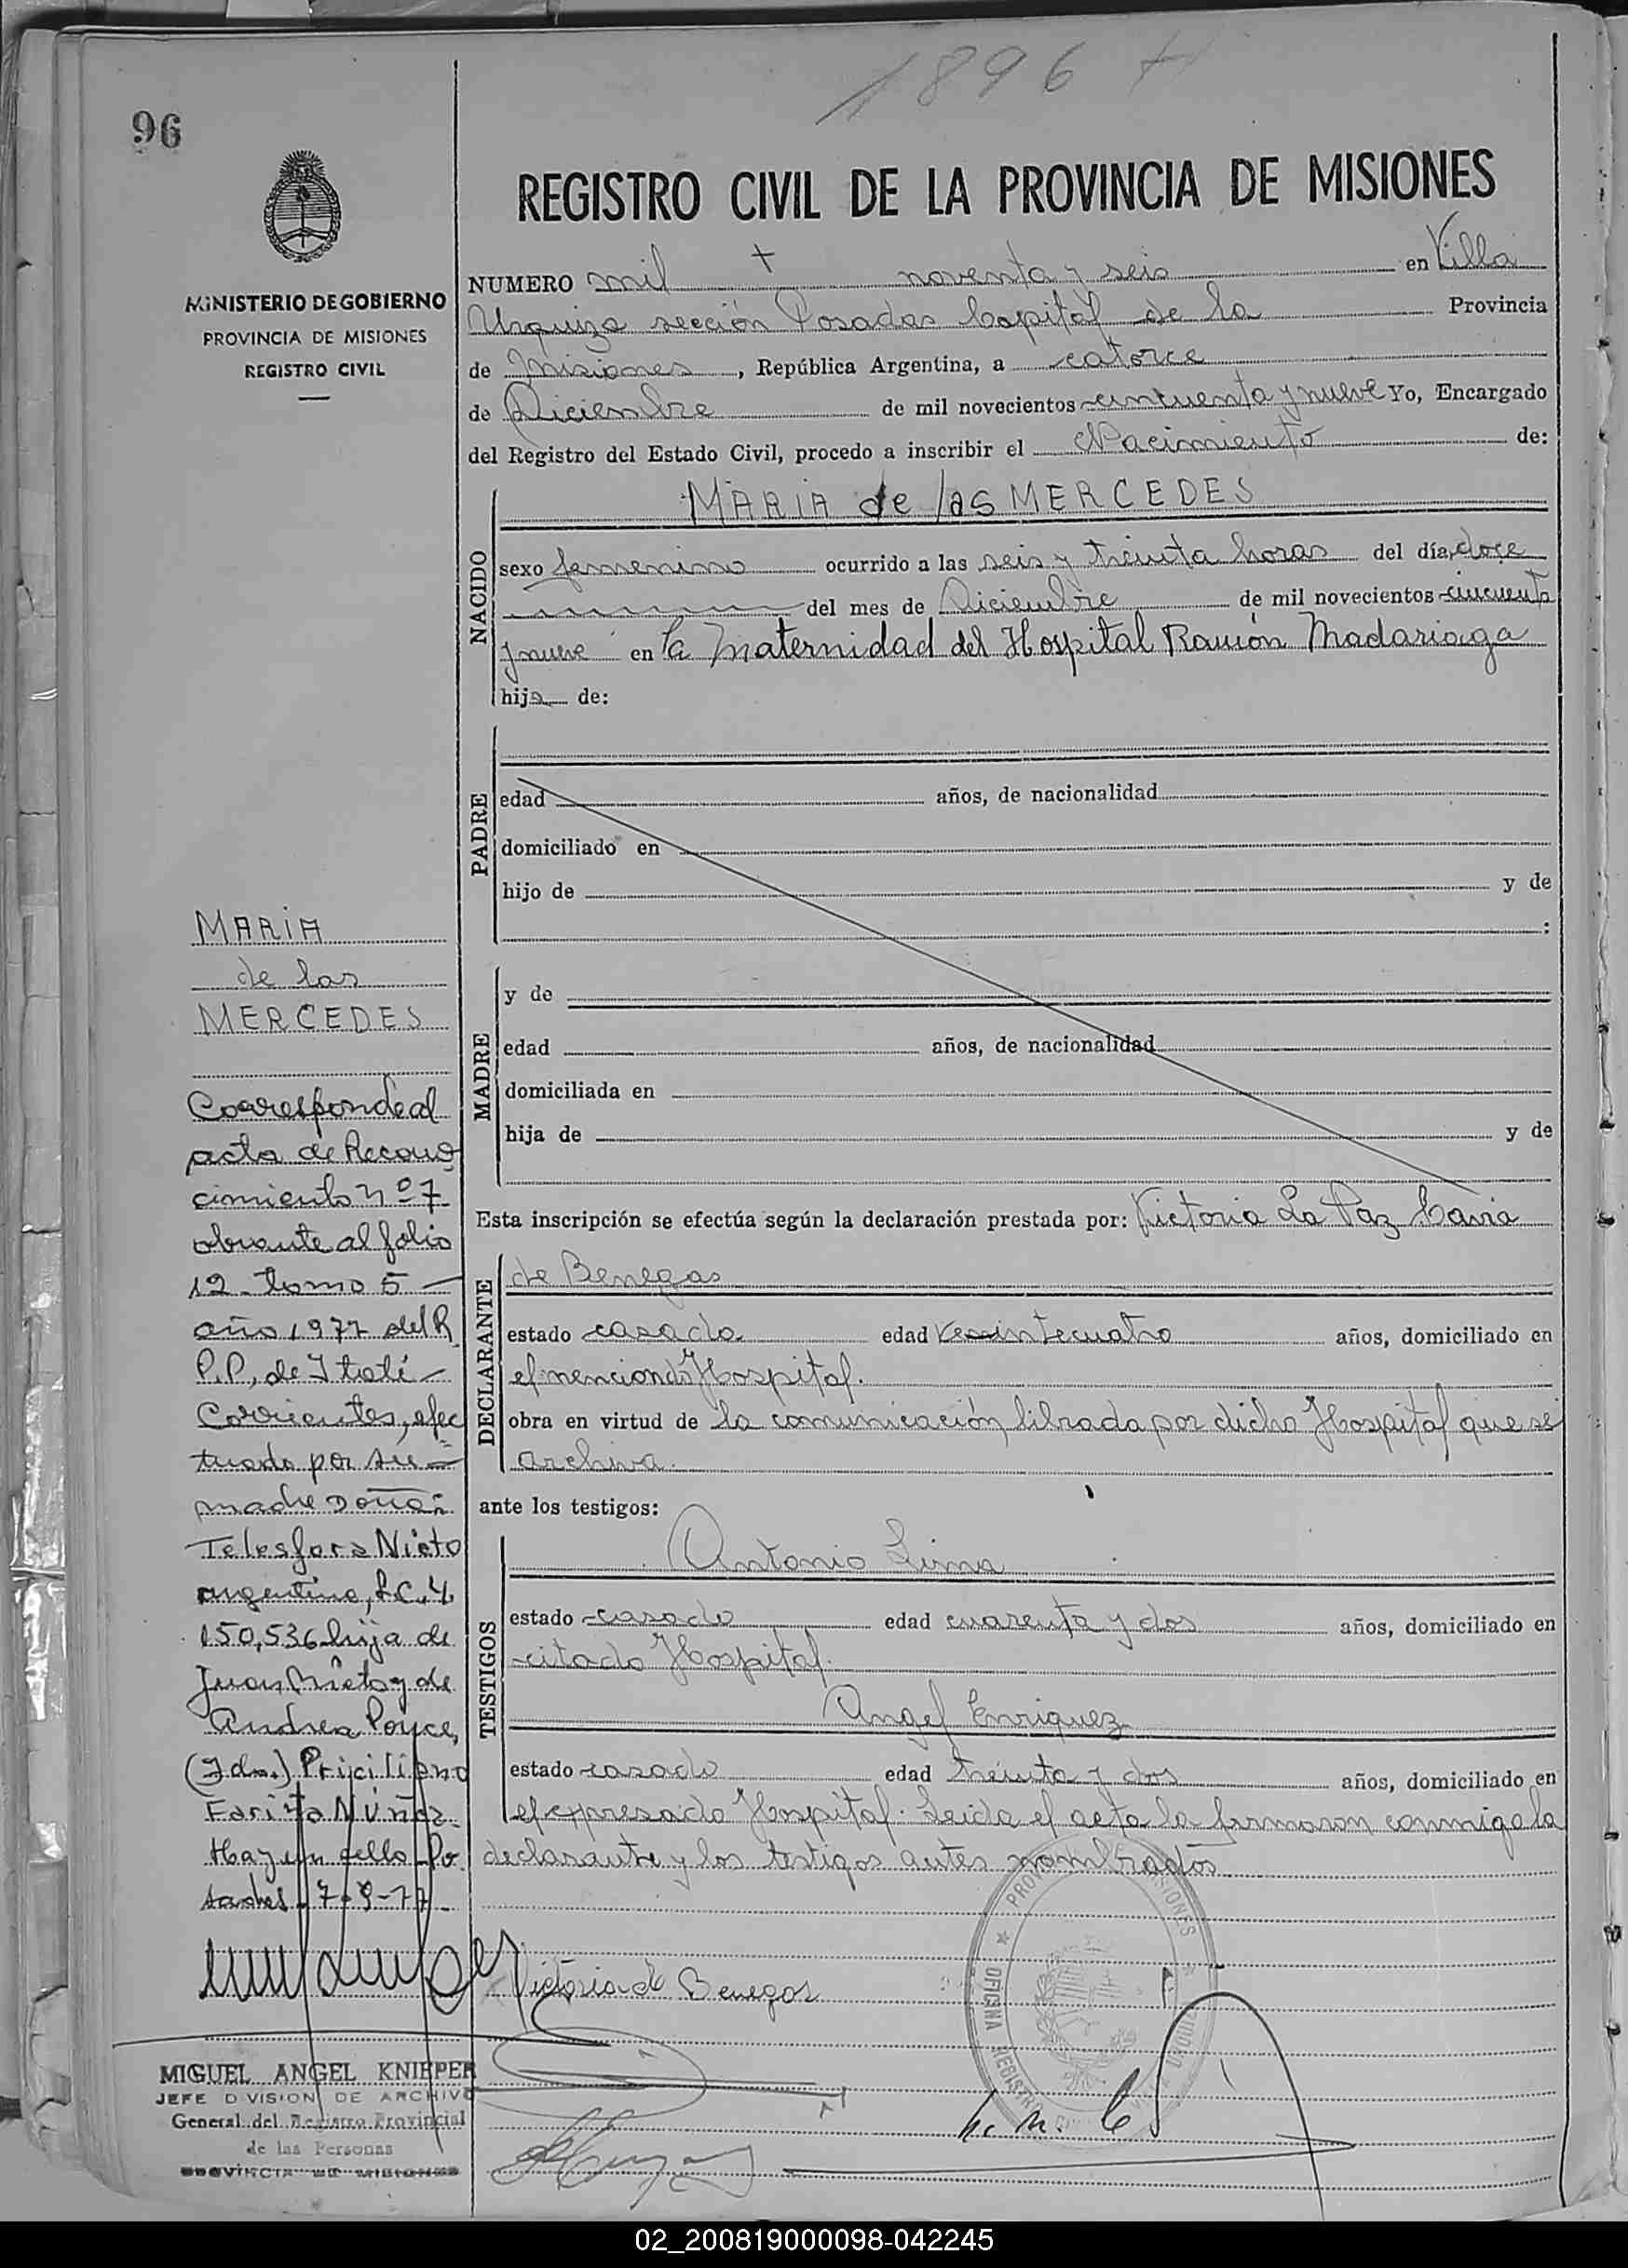 1896
96
REGISTRO CIVIL DE LA PROVINCIA DE MISIONES
MINISTERIO DE GOBIERNO
PROVINCIA DE MISIONES
REGISTRO CIVIL
NUMERO mil + noventa y seis en Villa
Urquiza sección Posadas Capital de la Provincia
de Misiones, República Argentina, a catorce
de Diciembre de mil novecientos cincuenta y nueve Yo, Encargado
del Registro del Estado Civil, procedo a inscribir el Nacimiento de:
NACIDO
MARIA de las MERCEDES
sexo femenino ocurrido a las seis y treinta horas del día doce
del mes de Diciembre de mil novecientos cincuenta
y nueve en la Maternidad del Hospital Ramón Madariaga
hija de:
PADRE
edad años, de nacionalidad
domiciliado en
hijo de y de
:
MADRE
y de
edad años, de nacionalidad
domiciliada en
hija de y de
Esta inscripción se efectúa según la declaración prestada por: Victoria La Paz
DECLARANTE
de Benegas
estado casada edad veinticuatro años, domiciliado en
el mencionado Hospital.
obra en virtud de la comunicación librada por dicho Hospital que se
archiva.
ante los testigos:
TESTIGOS
Antonio Lima
estado casado edad cuarenta y dos años, domiciliado en
citado Hospital.
Angel Enriquez
estado casado edad treinta y dos años, domiciliado en
el expresado Hospital. Leida el acta la firmaron conmigo la
declarante y los testigos antes nombrados
Victoria de Benegas
PROVINCIA DE MISIONES
OFICINA REGISTRO
MARIA
de las
MERCEDES
Corresponde al
acta de Recono
cimiento nº 7
obrante al folio
12 - tomo 5 -
año 1977 del R.
P.P, de Itatí -
Corrientes, efec
tuado por su =
madre Doña:
Telesfora Nieto
argentina, L.C. 4.
150,536 hija de
Juan Nieto y de
Andrea Ponce,
(Fdo.) Pricilipno
Fariña Núñez
Hay un sello Po
sadas 7-9-77-
MIGUEL ANGEL KNIEPER
JEFE DIVISION DE ARCHIVO
General del Registro Provincial
de las Personas
PROVINCIA DE MISIONES
02_200819000098-042245